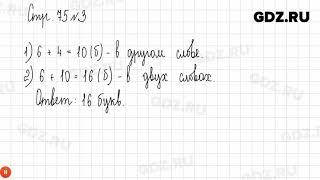 Стр. 75 №3
GDZ.RU
1) 6 + 4 = 10 (б) - в другом слове.
2) 6 + 10 = 16 (б) - в двух словах.
Ответ: 16 букв.